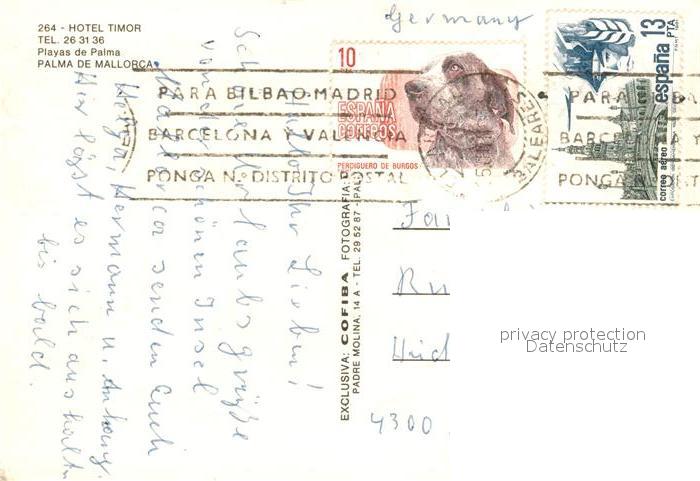 264 - HOTEL TIMOR
TEL. 26 31 36
Playas de Palma
PALMA DE MALLORCA
Germany
10
ESPAÑA
CORREOS
PERDIGUERO DE BURGOS
13
PTA
españa
correo aéreo
PARA BILBAO-MADRID
BARCELONA Y VALENCIA
PONGA N.º DISTRITO POSTAL
BALEARES
Hallo Ihr Lieben!
Schöne Urlaubsgrüße
von der schönen Insel
Mallorca senden Euch
Hermann u. Antony.
Hier lässt es sich aushalten
bis bald.
EXCLUSIVA: COFIBA FOTOGRAFIA
PADRE MOLINA, 14 A - TEL. 29 52 87
4300
privacy protection
Datenschutz